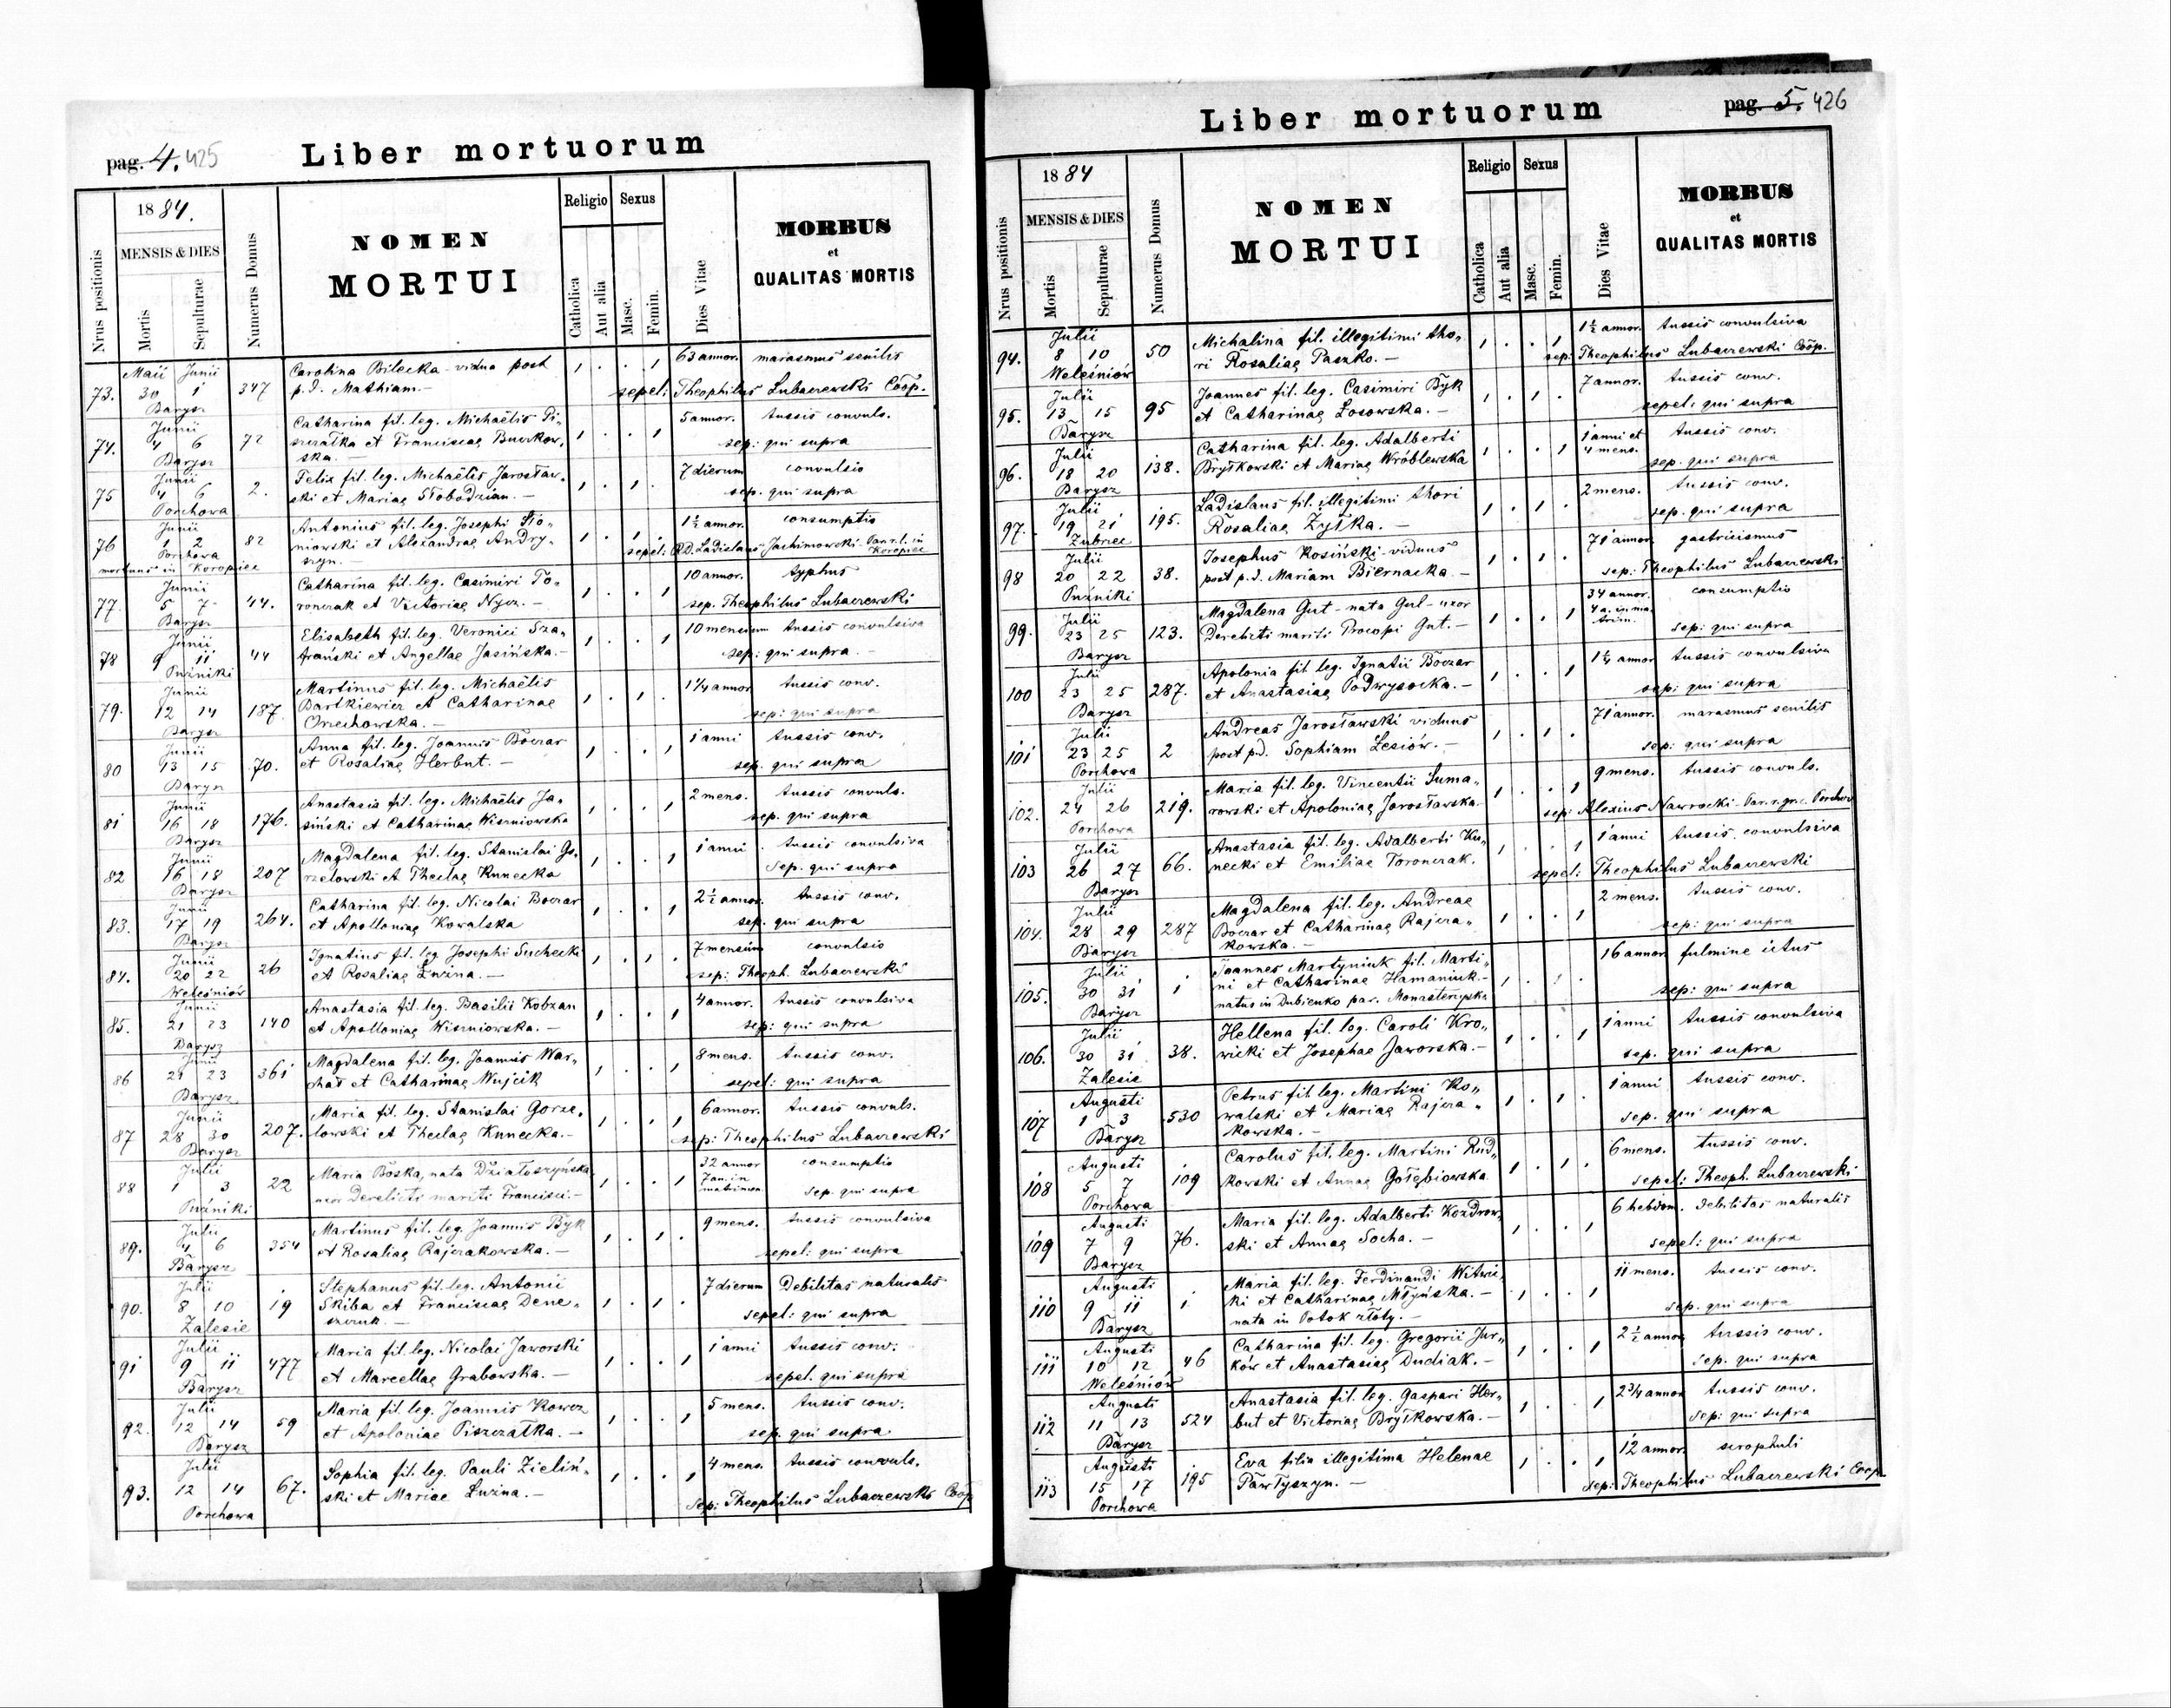 pag. 4. 425
Liber mortuorum
Nrus positionis
1884.
MENSIS & DIES
Mortis
Sepulturae
Numerus Domus
NOMEN
MORTUI
Religio
Catholica
Aut alia
Sexus
Masc.
Femin.
Dies Vitae
MORBUS
et
QUALITAS MORTIS
Maii Junii
73. 30 1 347 Carolina Bilecka vidua post 63 annor. marasmus senilis
p. d. Mathiam.— sepel: Theophilus Lubaczewski Coop.
Barysz
Junii
74. 4 6 72 Catharina fil. leg. Michaëlis Pi- 5 annor. tussis convuls.
szczatka et Franciscae Burkow- sep: qui supra
ska.—
Barysz
Junii
75 4 6 2. Felix fil. leg. Michaëlis Jarosław- 7 dierum convulsio
ski et Mariae Słobodzian.— sep. qui supra
Porchowa
Junii
76 1 2 82 Antonius fil. leg. Josephi Sio- 1½ annor. consumptio
niowski et Alexandrae Andry- sepel: R.D. Ladislaus Jachimowski Par. r. l. in Koropiec
szyn.—
Porchowa
mortuus in Koropiec
Junii
77. 5 7 44. Catharina fil. leg. Casimiri To- 10 annor. typhus
ronczak et Victoriae Nycz.— sep. Theophilus Lubaczewski
Barysz
Junii
78 9 11 44 Elisabeth fil. leg. Veronici Sza- 10 mensium tussis convulsiva
frański et Angellae Jasińska.— sep: qui supra.—
Puźniki
Junii
79. 12 14 187 Martinus fil. leg. Michaëlis 1¼ annor tussis conv.
Bartkiewicz et Catharinae sep: qui supra
Orzechowska.—
Barysz
Junii
80 13 15 70. Anna fil. leg. Joannis Boczar 1 anni tussis conv.
et Rosaliae Herbut.— sep. qui supra
Barysz
Junii
81 16 18 176. Anastasia fil. leg. Michaëlis Ja- 2 mens. tussis convuls.
siński et Catharinae Wiszniowska sep. qui supra
Barysz
Junii
82 16 18 207 Magdalena fil. leg. Stanislai Go- 1 anni tussis convulsiva
rzelowski et Theclae Kunecka sep. qui supra
Barysz
Junii
83. 17 19 264. Catharina fil. leg. Nicolai Boczar 2½ annor. tussis conv.
et Apolloniae Kowalska sep. qui supra
Barysz
Junii
84. 20 22 26 Ignatius fil. leg. Josephi Suchecki 7 mensium convulsio
et Rosaliae Luzina.— sep: Theoph. Lubaczewski
Weleśniów
Junii
85. 21 23 140 Anastasia fil. leg. Basilii Kobzan 4 annor. tussis convulsiva
et Apolloniae Wiszniowska.— sep: qui supra
Barysz
Junii
86 21 23 361 Magdalena fil. leg. Joannis War- 8 mens. tussis conv.
chał et Catharinae Wujcik sepel: qui supra
Barysz
Junii
87 28 30 207. Maria fil. leg. Stanislai Gorze- 6 annor. tussis convuls.
lowski et Theclae Kunecka.— sep: Theophilus Lubaczewski
Barysz
Julii
88 1 3 22 Maria Boska, nata Działoszyńska 32 annor consumptio
uxor Derelicti mariti Francisci.— 7 an. in matrimon. sep. qui supra
Puźniki
Julii
89. 4 6 354 Martinus fil. leg. Joannis Byk 9 mens. tussis convulsiva
et Rosaliae Rajczakowska.— sepel: qui supra
Barysz
Julii
90. 8 10 19 Stephanus fil. leg. Antonii 7 dierum Debilitas naturalis
Skiba et Franciscae Dene- sepel: qui supra
szczuk.—
Zalesie
Julii
91 9 11 477 Maria fil. leg. Nicolai Jaworski 1 anni tussis conv.
et Marcellae Grabowska.— sepel. qui supra
Barysz
Julii
92. 12 14 59 Maria fil. leg. Joannis Kowcz 5 mens. tussis conv.
et Apoloniae Piszczatka.— sep. qui supra
Barysz
Julii
93. 12 14 67. Sophia fil. leg. Pauli Zieliń- 4 mens. tussis convuls.
ski et Mariae Luzina.— sep: Theophilus Lubaczewski Coop
Porchowa
pag. 5. 426
Liber mortuorum
Nrus positionis
1884
MENSIS & DIES
Mortis
Sepulturae
Numerus Domus
NOMEN
MORTUI
Religio
Catholica
Aut alia
Sexus
Masc.
Femin.
Dies Vitae
MORBUS
et
QUALITAS MORTIS
Julii
94. 8 10 50 Michalina fil. illegitimi tho- 1½ annor. tussis convulsiva
ri Rosaliae Paszko.— sep: Theophilus Lubaczewski Coop.
Weleśniów
Julii
95. 13 15 95 Joannes fil. leg. Casimiri Byk 7 annor. tussis conv.
et Catharinae Łosowska.— sepel: qui supra
Barysz
Julii
96. 18 20 138. Catharina fil. leg. Adalberti 1 anni et 4 mens. tussis conv.
Brytkowski et Mariae Wróblewska sep. qui supra
Barysz
Julii
97. 19 21 195. Ladislaus fil. illegitimi thori 2 mens. tussis conv.
Rosaliae Zytka.— sep. qui supra
Zubrzec
Julii
98 20 22 38. Josephus Kosiński viduus 71 annor. gastricismus
post p. d. Mariam Biernacka.— sep: Theophilus Lubaczewski
Puźniki
Julii
99. 23 25 123. Magdalena Gut nata Gul uxor 34 annor. 4 a. in matrim. consumptio
Derelicti mariti Procopi Gut.— sep: qui supra
Barysz
Julii
100 23 25 287. Apolonia fil. leg. Ignatii Boczar 1¼ annor tussis convulsiva
et Anastasiae Podwysocka.— sep: qui supra
Barysz
Julii
101 23 25 2 Andreas Jarosławski viduus 71 annor. marasmus senilis
post p.d. Sophiam Lesiów.— sep: qui supra
Porchowa
Julii
102. 24 26 219. Maria fil. leg. Vincentii Suma- 9 mens. tussis convuls.
rowski et Apoloniae Jarosławska. sep: Alexius Nawrocki Par. r. gr. c. Porchow
Porchowa
Julii
103 26 27 66. Anastasia fil. leg. Adalberti Ku- 1 anni tussis convulsiva
necki et Emiliae Toronczak. sepel: Theophilus Lubaczewski
Barysz
Julii
104. 28 29 287 Magdalena fil. leg. Andreae 2 mens. tussis conv.
Boczar et Catharinae Rajcza- sep: qui supra
kowska.—
Barysz
Julii
105. 30 31 1 Joannes Martyniuk fil. Marti- 16 annor. fulmine ictus
ni et Catharinae Hamaniuk.— sep: qui supra
natus in Dubienko par. Monasterzyska
Barysz
Julii
106. 30 31 38. Hellena fil. leg. Caroli Kro- 1 anni tussis convulsiva
wicki et Josephae Jaworska.— sep. qui supra
Zalesie
Augusti
107 1 3 530 Petrus fil. leg. Martini Ko- 1 anni tussis conv.
walski et Mariae Rajcza- sep. qui supra
kowska.—
Barysz
Augusti
108 5 7 109 Carolus fil. leg. Martini Rud- 6 mens. tussis conv.
kowski et Annae Gołębiowska sepel: Theoph. Lubaczewski
Porchowa
Augusti
109 7 9 76. Maria fil. leg. Adalberti Kozdrow- 6 hebdom. debilitas naturalis
ski et Annae Socha.— sepel: qui supra
Barysz
Augusti
110 9 11 1. Maria fil. leg. Ferdinandi Witwic- 11 mens. tussis conv.
ki et Catharinae Młyńska.— sep. qui supra
nata in Potok złoty.—
Barysz
Augusti
111 10 12 46 Catharina fil. leg. Gregorii Jur- 2½ annor tussis conv.
ków et Anastasiae Dudiak.— sep. qui supra
Weleśniów
Augusti
112 11 13 524 Anastasia fil. leg. Gaspari Her- 2¾ annor tussis conv.
but et Victoriae Brytkowska.— sep: qui supra
Barysz
Augusti
113 15 17 195 Eva filia illegitima Helenae 12 annor. scrophuli
Pawłyszyn.— sep: Theophilus Lubaczewski Coop
Porchowa